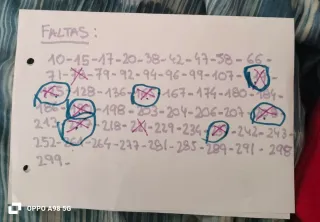 FALTAS:
10-15-17-20-38-42-47-58-66-
71- -79-92-94-96-99-107-
128-136- -167-174-180-184-
186- -198-203-204-206-207-
213- -218- -229-234- -242-243-
252- -264-277-281-285-289-291-298
299-
OPPO A98 5G